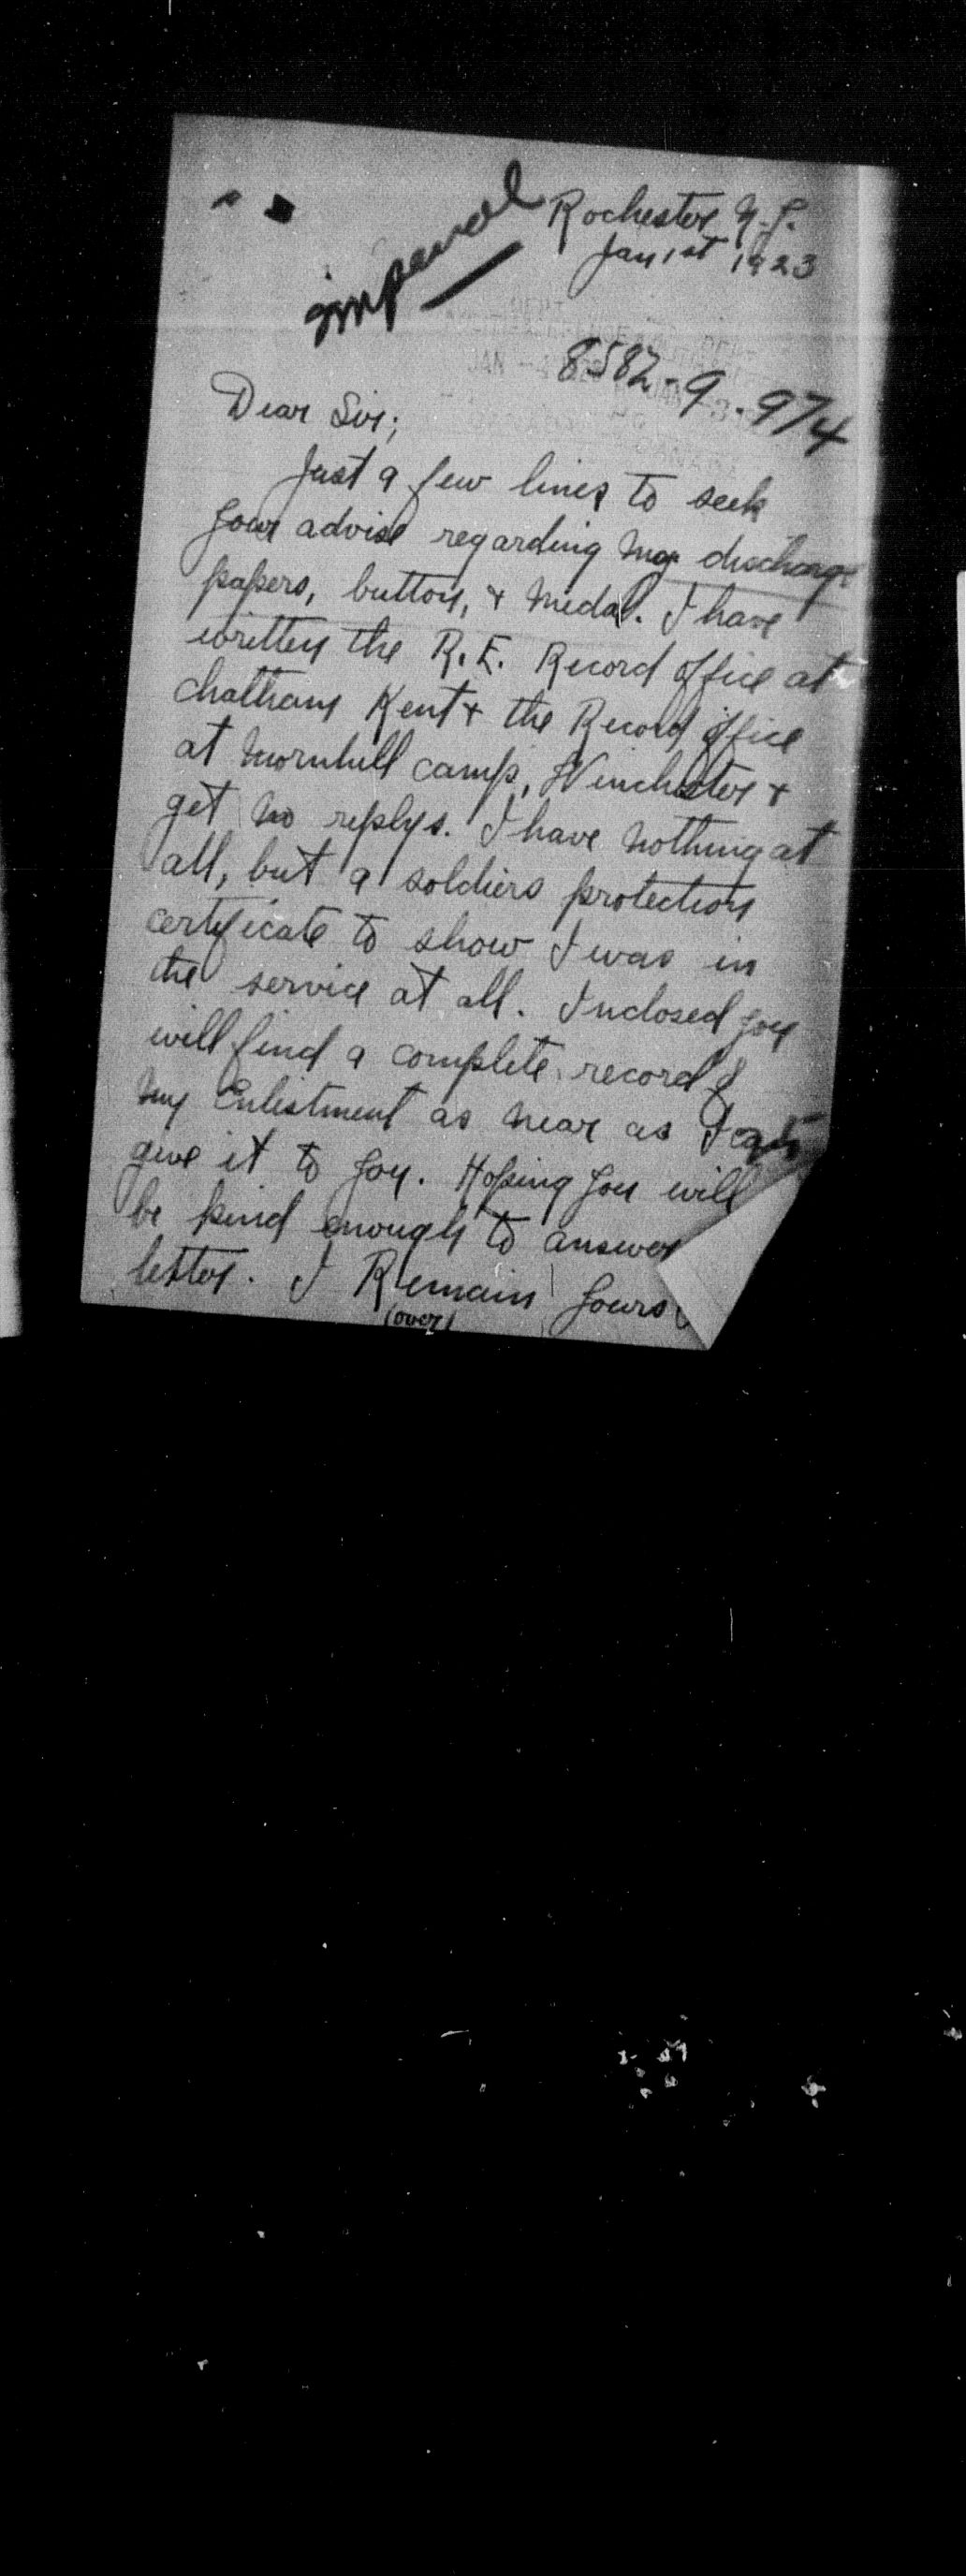 imperial
Rochester N.Y.
Jan 1st 1923
JAN
8582-9-974
Dear Sir;
Just a few lines to seek
your advise regarding my discharge
papers, button, + medal. I have
written the R.E. Record office at
Chatham Kent + the Record office
at Mornhill camp, Winchester +
get no replys. I have nothing at
all, but a soldiers protection
certificate to show I was in
the service at all. Inclosed you
will find a complete record of
my Enlistment as near as I can
give it to you. Hoping you will
be kind enough to answer
letter. I Remain yours
(over)